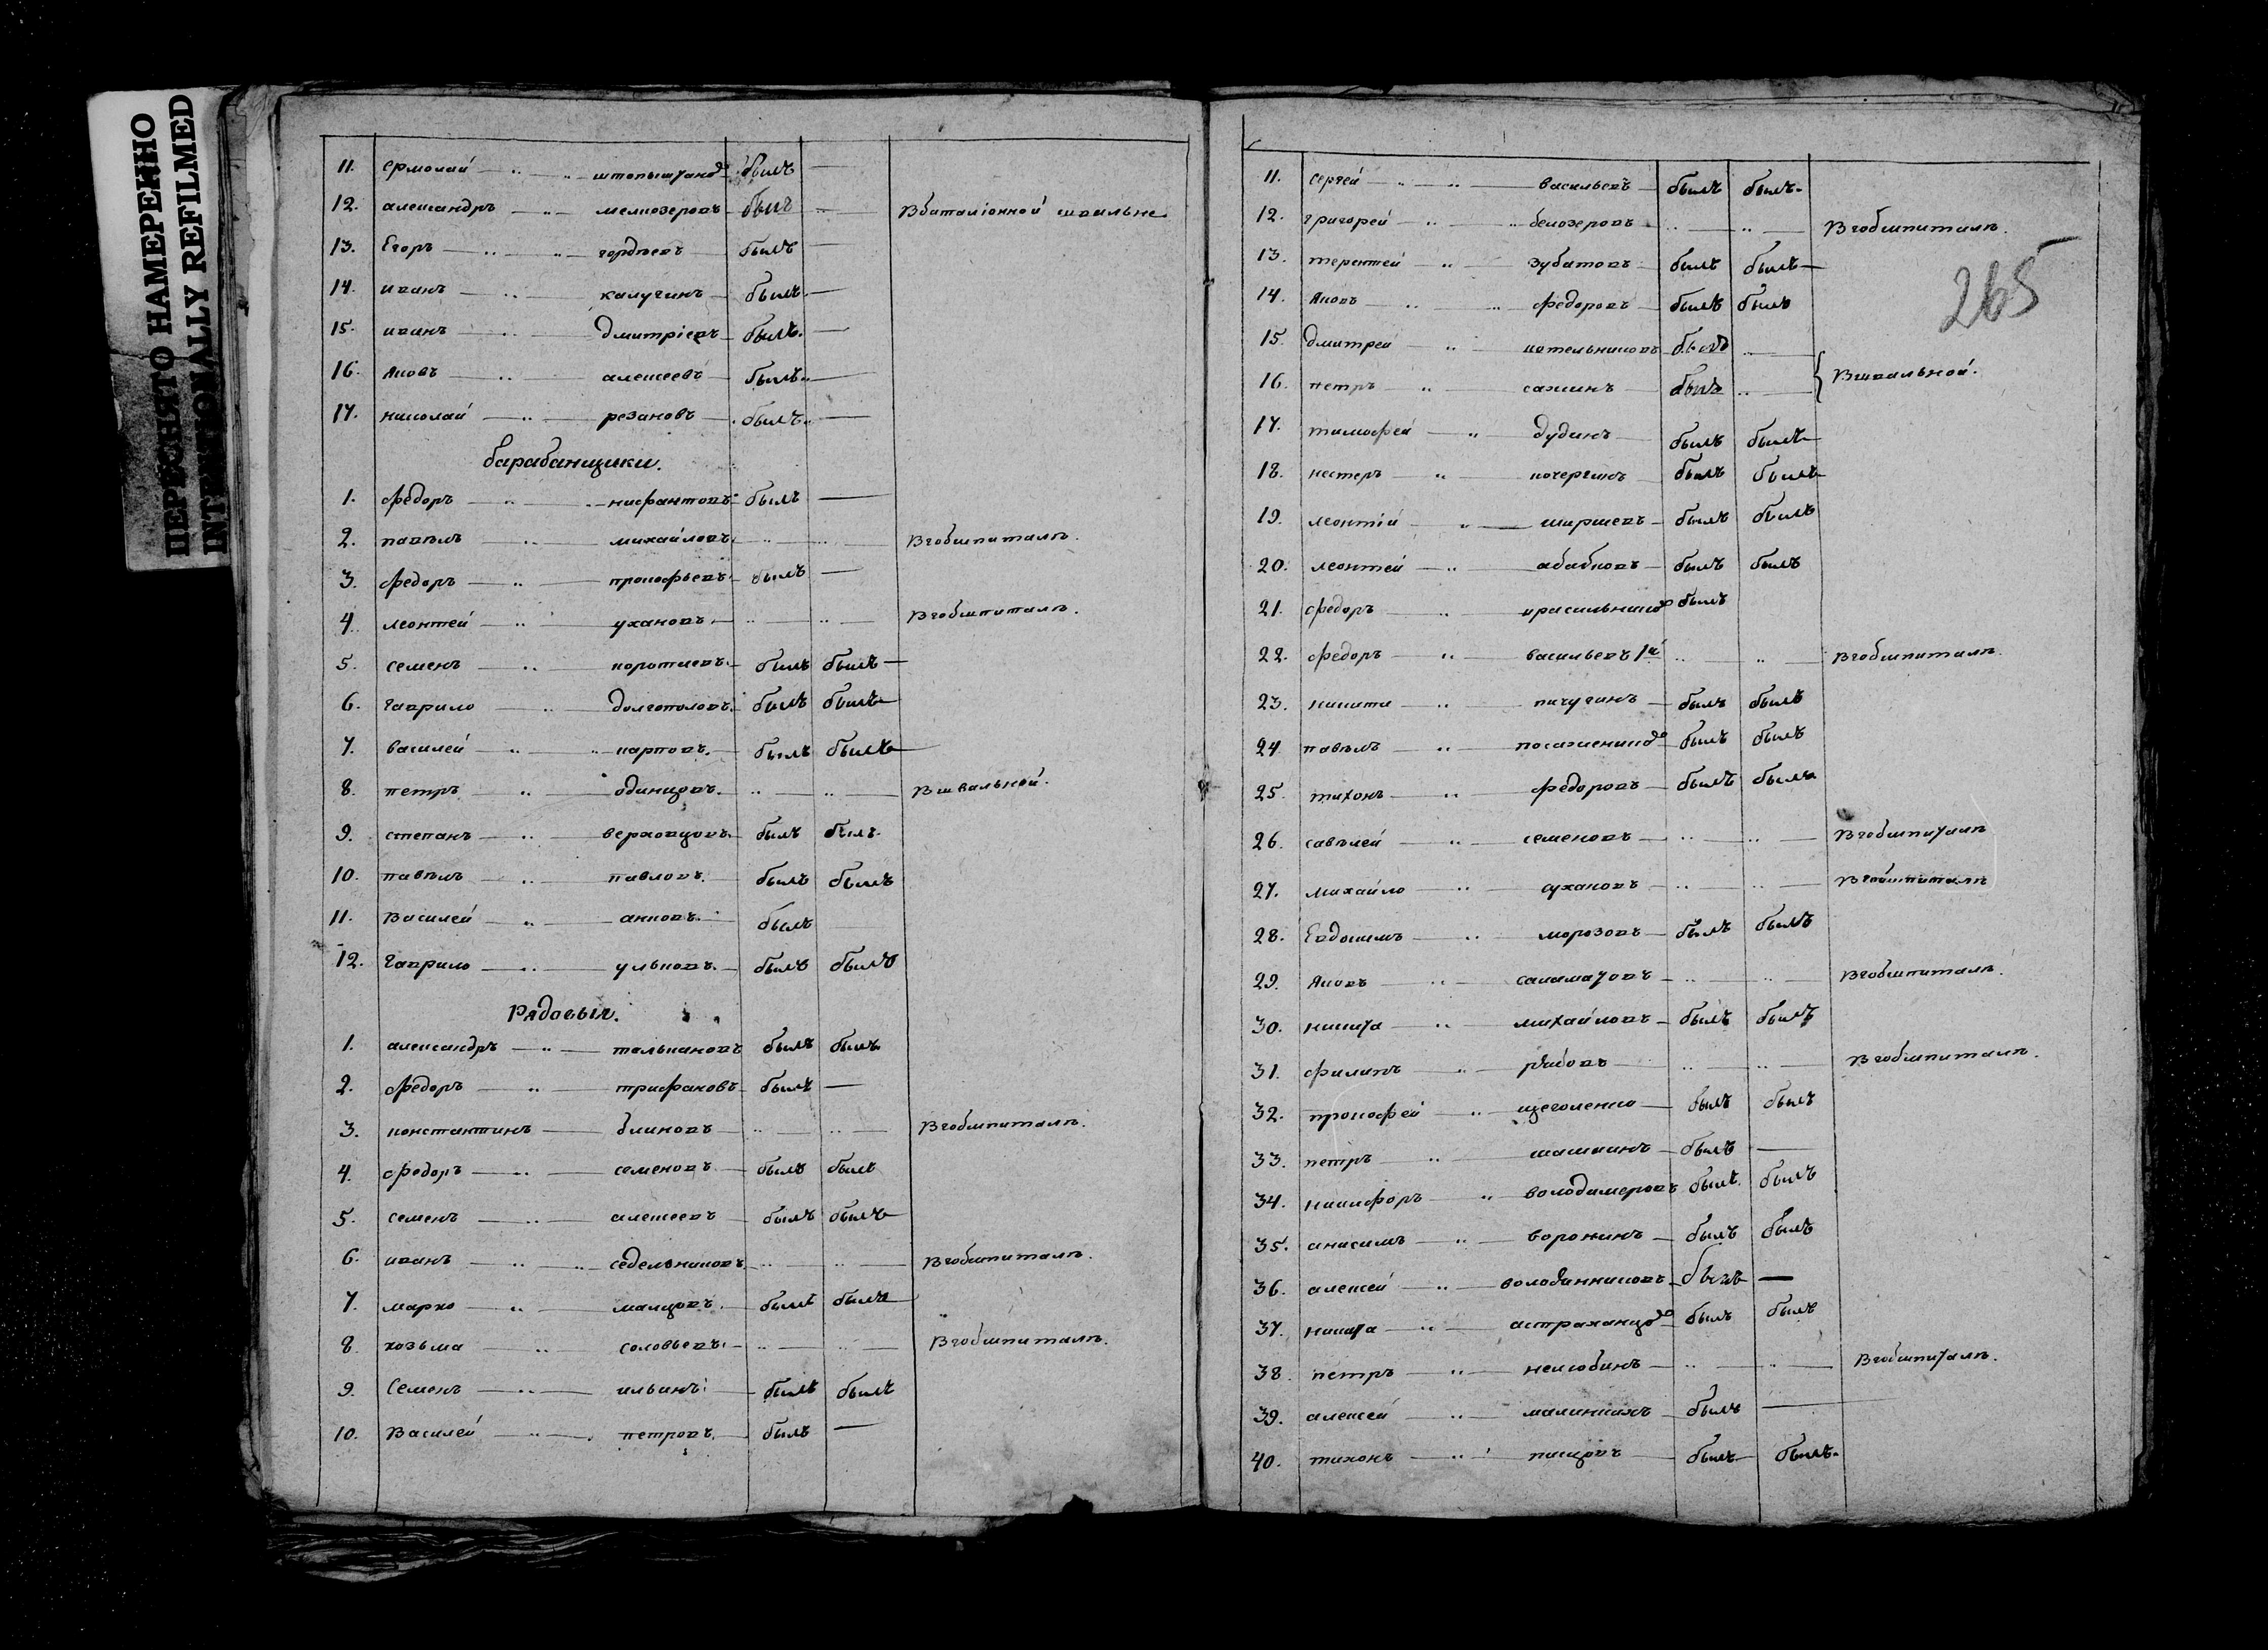 ПЕРЕСНЯТО НАМЕРЕННО
INTENTIONALLY REFILMED
11. ермолай былъ
12. александръ мелиозеровъ былъ Вбаталіонной швальне
13. Егоръ гордѣевъ былъ
14. иванъ калугинъ былъ
15. иванъ дмитріевъ былъ
16. яковъ алексеевъ былъ
17. николай резановъ былъ
барабанщики.
1. федоръ нифантовъ былъ
2. павѣлъ михайловъ Вгобшпиталѣ.
3. федоръ прокофьевъ былъ
4. леонтей ухановъ Вгобшпиталѣ.
5. семенъ коротаевъ былъ былъ
6. гаврило долгополовъ былъ былъ
7. василей карповъ былъ былъ
8. петръ одинцовъ Вшвальной.
9. степанъ верховцовъ былъ былъ
10. павѣлъ павловъ былъ былъ
11. Василей анновъ былъ
12. гаврило ульковъ былъ былъ
Рядовыя.
1. александръ толкановъ былъ былъ
2. федоръ трифановъ былъ
3. константинъ блиновъ Вгобшпиталѣ.
4. федоръ семеновъ былъ былъ
5. семенъ алексеевъ былъ былъ
6. иванъ седельниковъ Вгобшпиталѣ.
7. марко малцовъ былъ былъ
8. козьма соловьевъ Вгобшпиталѣ.
9. Семенъ ильинъ былъ былъ
10. Василей петровъ былъ
265
11. сергей васильевъ былъ былъ
12. григорей белозеровъ Вгобшпиталѣ.
13. терентей зубатовъ былъ былъ
14. яковъ федоровъ былъ былъ
15. дмитрей котельниковъ былъ
16. петръ сажинъ былъ Вшвальной.
17. тимофей дудинъ былъ былъ
18. нестеръ кочергинъ былъ былъ
19. леонтій ширшевъ былъ былъ
20. леонтей абабковъ былъ былъ
21. федоръ красильнико былъ
22. федоръ васильевъ 1й Вгобшпиталѣ.
23. никита пичугинъ былъ былъ
24. павѣлъ былъ былъ
25. тихонъ федоровъ былъ былъ
26. савѣлей семеновъ Вгобшпиталѣ
27. михайло сухановъ Вгобшпиталѣ
28. Евдокимъ морозовъ былъ былъ
29. яковъ саламатовъ Вгобшпиталѣ.
30. никита михайловъ былъ былъ
31. филипъ рябовъ Вгобшпиталѣ.
32. прокофей щеголенко былъ былъ
33. петръ шашкинъ былъ
34. никифоръ володимеровъ былъ былъ
35. анисимъ воронинъ былъ былъ
36. алексей былъ
37. никита астраханцо былъ былъ
38. петръ нелюбинъ Вгобшпиталѣ.
39. алексей малинкинъ былъ
40. тихонъ пищовъ былъ былъ